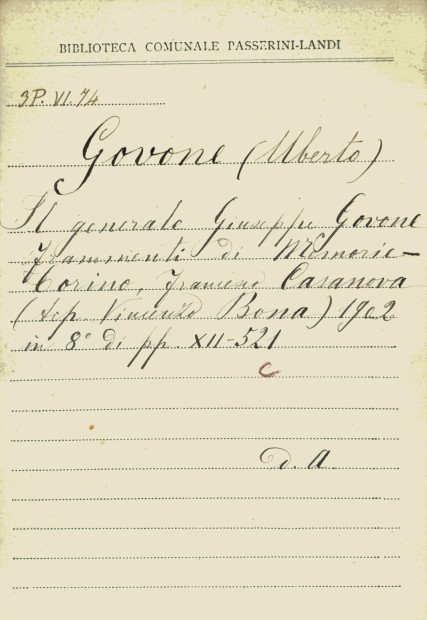 BIBLIOTECA COMUNALE PASSERINI-LANDI
3P. VI. 74
Govone (Uberto)
Il generale Giuseppe Govone
Frammenti di Memorie –
Torino, Francesco Casanova
(tip. Vincenzo Bona) 1902
in 8° di pp. XII-521
C
D. A.